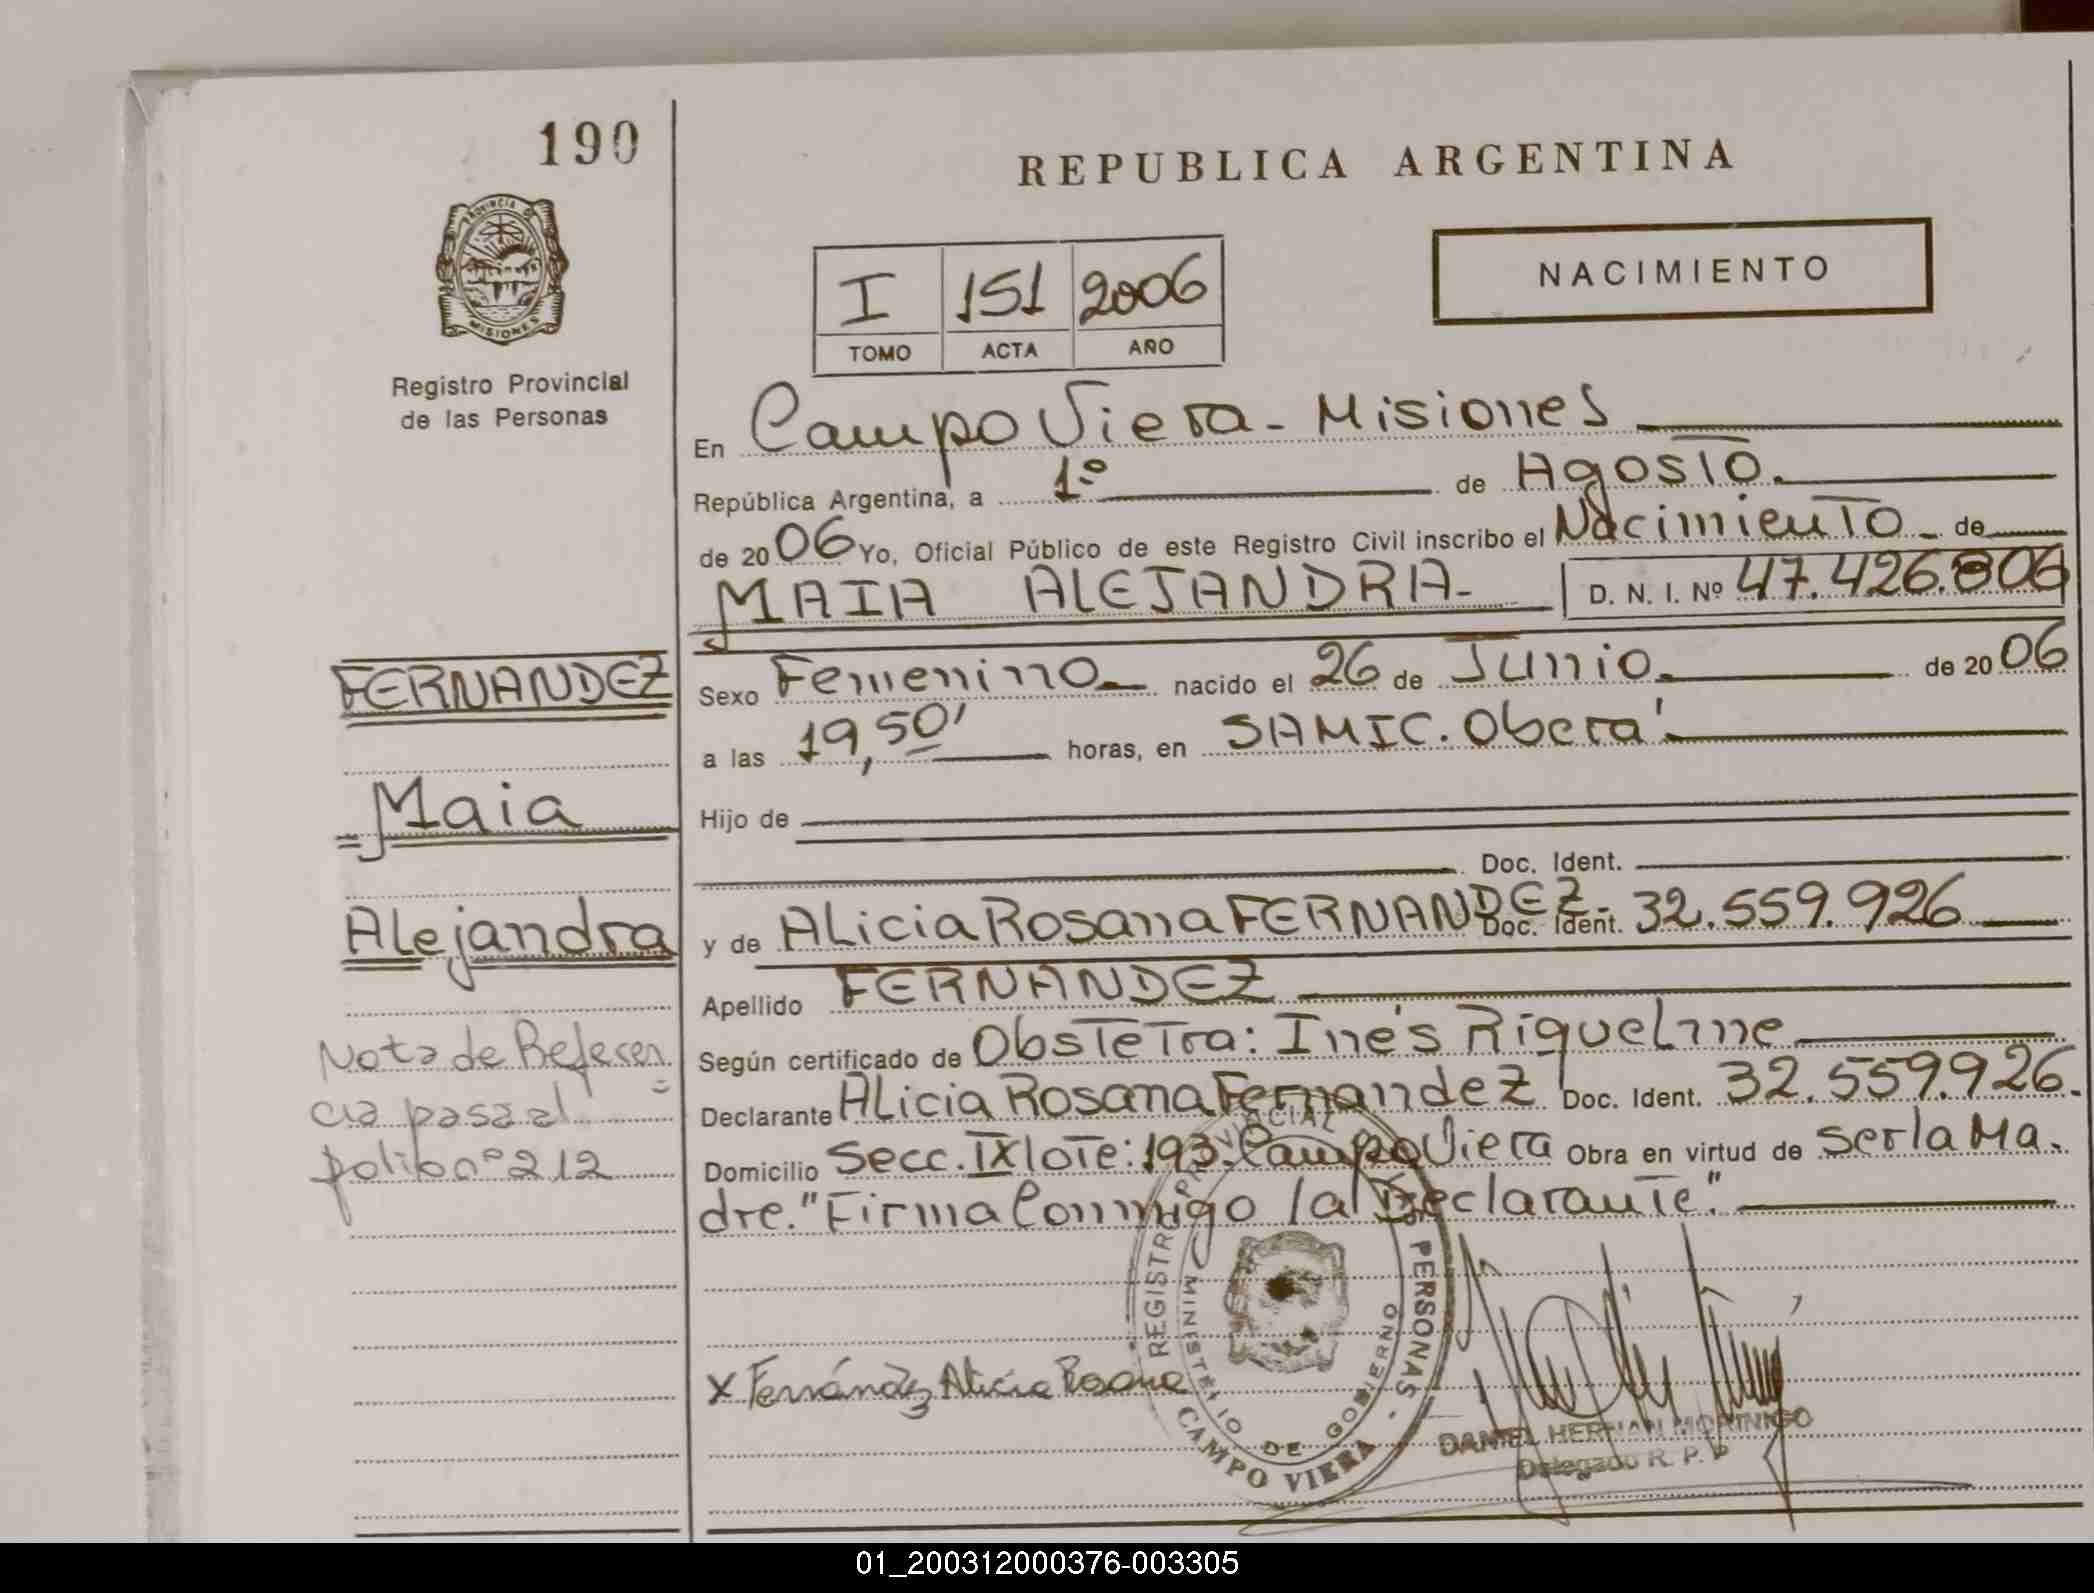 190
REPUBLICA ARGENTINA
PROVINCIA DE
MISIONES
Registro Provincial
de las Personas
NACIMIENTO
I 151 2006
TOMO ACTA AÑO
En Campo Viera - Misiones
República Argentina, a 1º de Agosto.
de 2006 Yo, Oficial Público de este Registro Civil inscribo el Nacimiento - de
MAIA ALEJANDRA- D. N. I. Nº 47.426.806
FERNANDEZ
Sexo Femenino nacido el 26 de Junio. de 2006
a las 19,50' horas, en SAMIC. Oberá
Maia
Hijo de
Doc. Ident.
Alejandra
y de Alicia Rosana FERNANDEZ- Doc. Ident. 32.559.926
Apellido FERNANDEZ
Nota de Referen
cia pasa al
folio nº 212
Según certificado de Obstetra: Inés Riquelme
Declarante Alicia Rosana Fernandez Doc. Ident. 32.559.926.
Domicilio Secc. IX lote: 193. Campo Viera Obra en virtud de ser la Ma.
dre. "Firma Conmigo la Declarante."
REGISTRO PROVINCIAL PERSONAS -
MINISTERIO DE GOBIERNO
CAMPO VIERA
x Fernández Alicia Rosana
DANIEL HERNAN MORINIGO
Delegado R. P. P
01_200312000376-003305